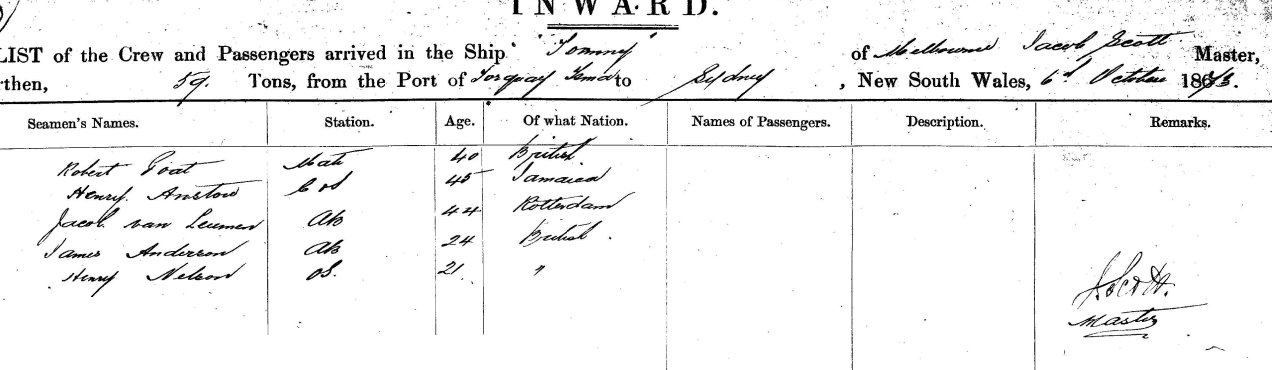 INWARD.
LIST of the Crew and Passengers arrived in the Ship "Tommy" of Melbourne Jacob Scott Master,
rthen, 59. Tons, from the Port of Torquay to Sydney, New South Wales, 6th October 1873.
Seamen's Names. Station. Age. Of what Nation. Names of Passengers. Description. Remarks.
Robert Goat Mate 40 British
Henry Anstow Cook 45 Jamaica
Jacob van Leumen AB 44 Rotterdam
James Anderson AB 24 British.
Henry Nelson OS. 21. "
J. Scott.
Master